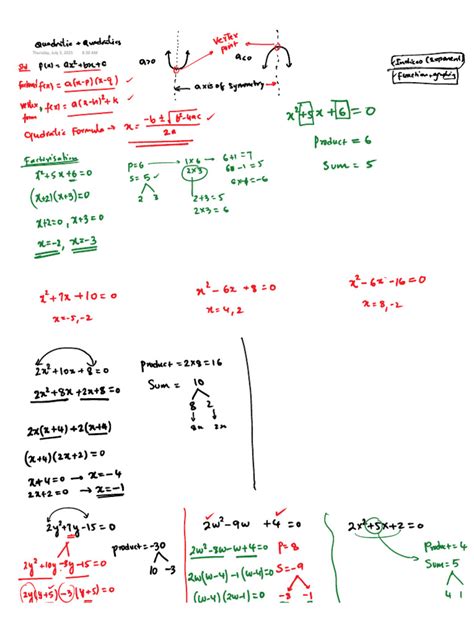 Quadratic + Quadratics
Thursday, July 3, 2025
Std P(x) = ax²+bx+c
factored f(x) = a(x-p)(x-q)
vertex form f(x) = a(x-h)²+k
Quadratic Formula → x = -b ± √b²-4ac / 2a
a>0
vertex point
a<0
axis of symmetry
Indices (Exponent)
Function + graphing
Factorisation
x²+5x+6=0
(x+2)(x+3)=0
x+2=0, x+3=0
x=-2, x=-3
P=6
S=5
2 3
1×6
2×3
6+1=7
6-1=5
6×-1=-6
2+3=5
2×3=6
x²+5x+6=0
Product = 6
Sum = 5
x²+7x+10=0
x=-5,-2
x²-6x+8=0
x=4,2
x²-6x-16=0
x=8,-2
2x²+10x+8=0
2x²+8x+2x+8=0
2x(x+4)+2(x+4)
(x+4)(2x+2)=0
x+4=0 → x=-4
2x+2=0 → x=-1
product = 2×8=16
Sum = 10
8 2
8x 2x
2y²+7y-15=0
2y²+10y-3y-15=0
2y(y+5)-3(y+5)=0
product=-30
10 -3
2w²-9w+4=0
2w²-8w-w+4=0
2w(w-4)-1(w-4)=0
(w-4)(2w-1)=0
P=8
S=-9
-8 -1
2x²+5x+2=0
Product = 4
Sum = 5
4 1